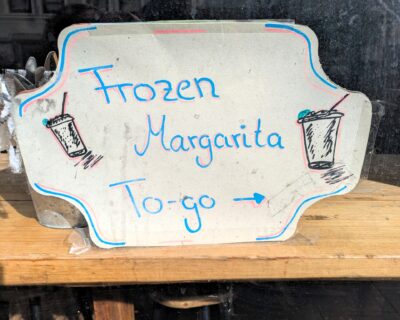 Frozen
Margarita
To-go →